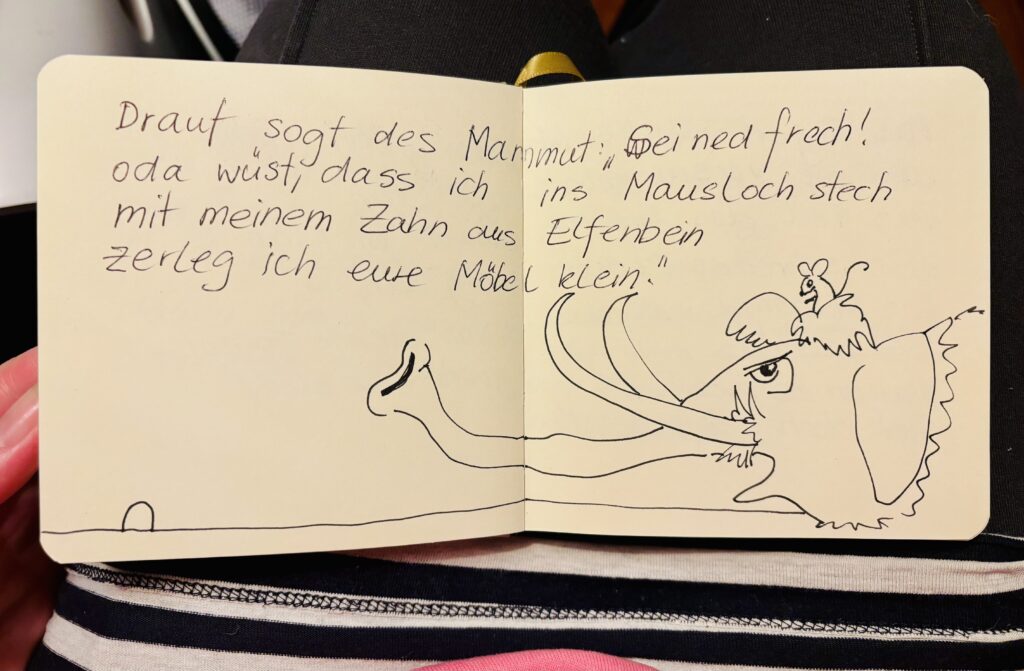 Drauf sogt des Mammut: „Sei ned frech!
oda wüst, dass ich ins Mausloch stech
mit meinem Zahn aus Elfenbein
zerleg ich eure Möbel klein."